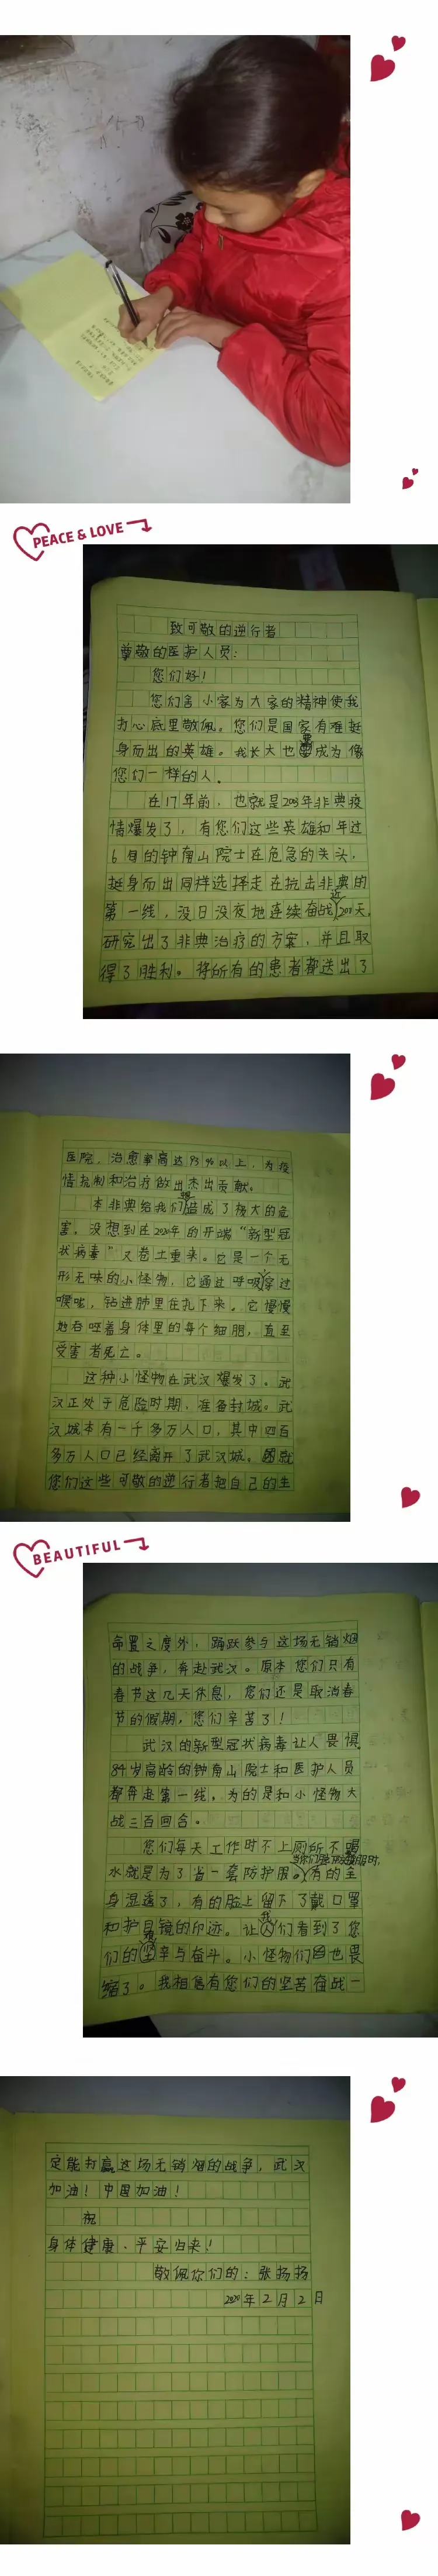 PEACE & LOVE
致可敬的逆行者
尊敬的医护人员：
您们好！
您们舍小家为大家的精神使我
打心底里敬佩。您们是国家有难挺
身而出的英雄。我长大也要成为像
您们一样的人。
在17年前，也就是2003年非典疫
情爆发了，有您们这些英雄和年过
6旬的钟南山院士在危急的关头，
挺身而出同样选择走在抗击非典的
第一线，没日没夜地连续奋战近200天，
研究出了非典治疗的方案，并且取
得了胜利。将所有的患者都送出了
医院，治愈率高达95%以上，为疫
情抗制和治疗做出杰出贡献。
本非典给我们造成了极大的危
害。没想到在2020年的开端“新型冠
状病毒”又卷土重来。它是一个无
形无味的小怪物，它通过呼吸穿过
喉咙，钻进肺里在扎下来。它慢慢
地吞噬着身体里的每个细胞，直至
受害者死亡。
这种小怪物在武汉爆发了。武
汉正处于危险时期，准备封城。武
汉城本有一千多万人口，其中四百
多万人口已经离开了武汉城。就
您们这些可敬的逆行者把自己的生
BEAUTIFUL
命置之度外，踊跃参与这场无销烟
的战争，奔赴武汉。原本您们只有
春节这几天休息，您们还是取消春
节的假期，您们辛苦了！
武汉的新型冠状病毒让人畏惧，
84岁高龄的钟南山院士和医护人员
都奔走第一线，为的是和小怪物大
战三百回合。
您们每天工作时不上厕所不喝
水就是为了省一套防护服。当你们脱下防护服时，有的全
身湿透了，有的脸上留下了戴口罩
和护目镜的印迹。让我们看到了您
们的艰辛与奋斗。小怪物们也畏
缩了。我相信有您们的坚苦奋战一
定能打赢这场无销烟的战争，武汉
加油！中国加油！
祝
身体健康、平安归来！
敬佩你们的：张扬扬
2020年2月2日